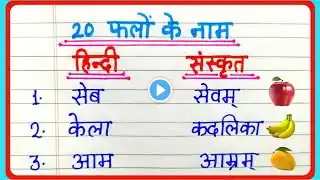 20 फलों के नाम
हिन्दी संस्कृत
1. सेब सेवम्
2. केला कदलिका
3. आम आम्रम्